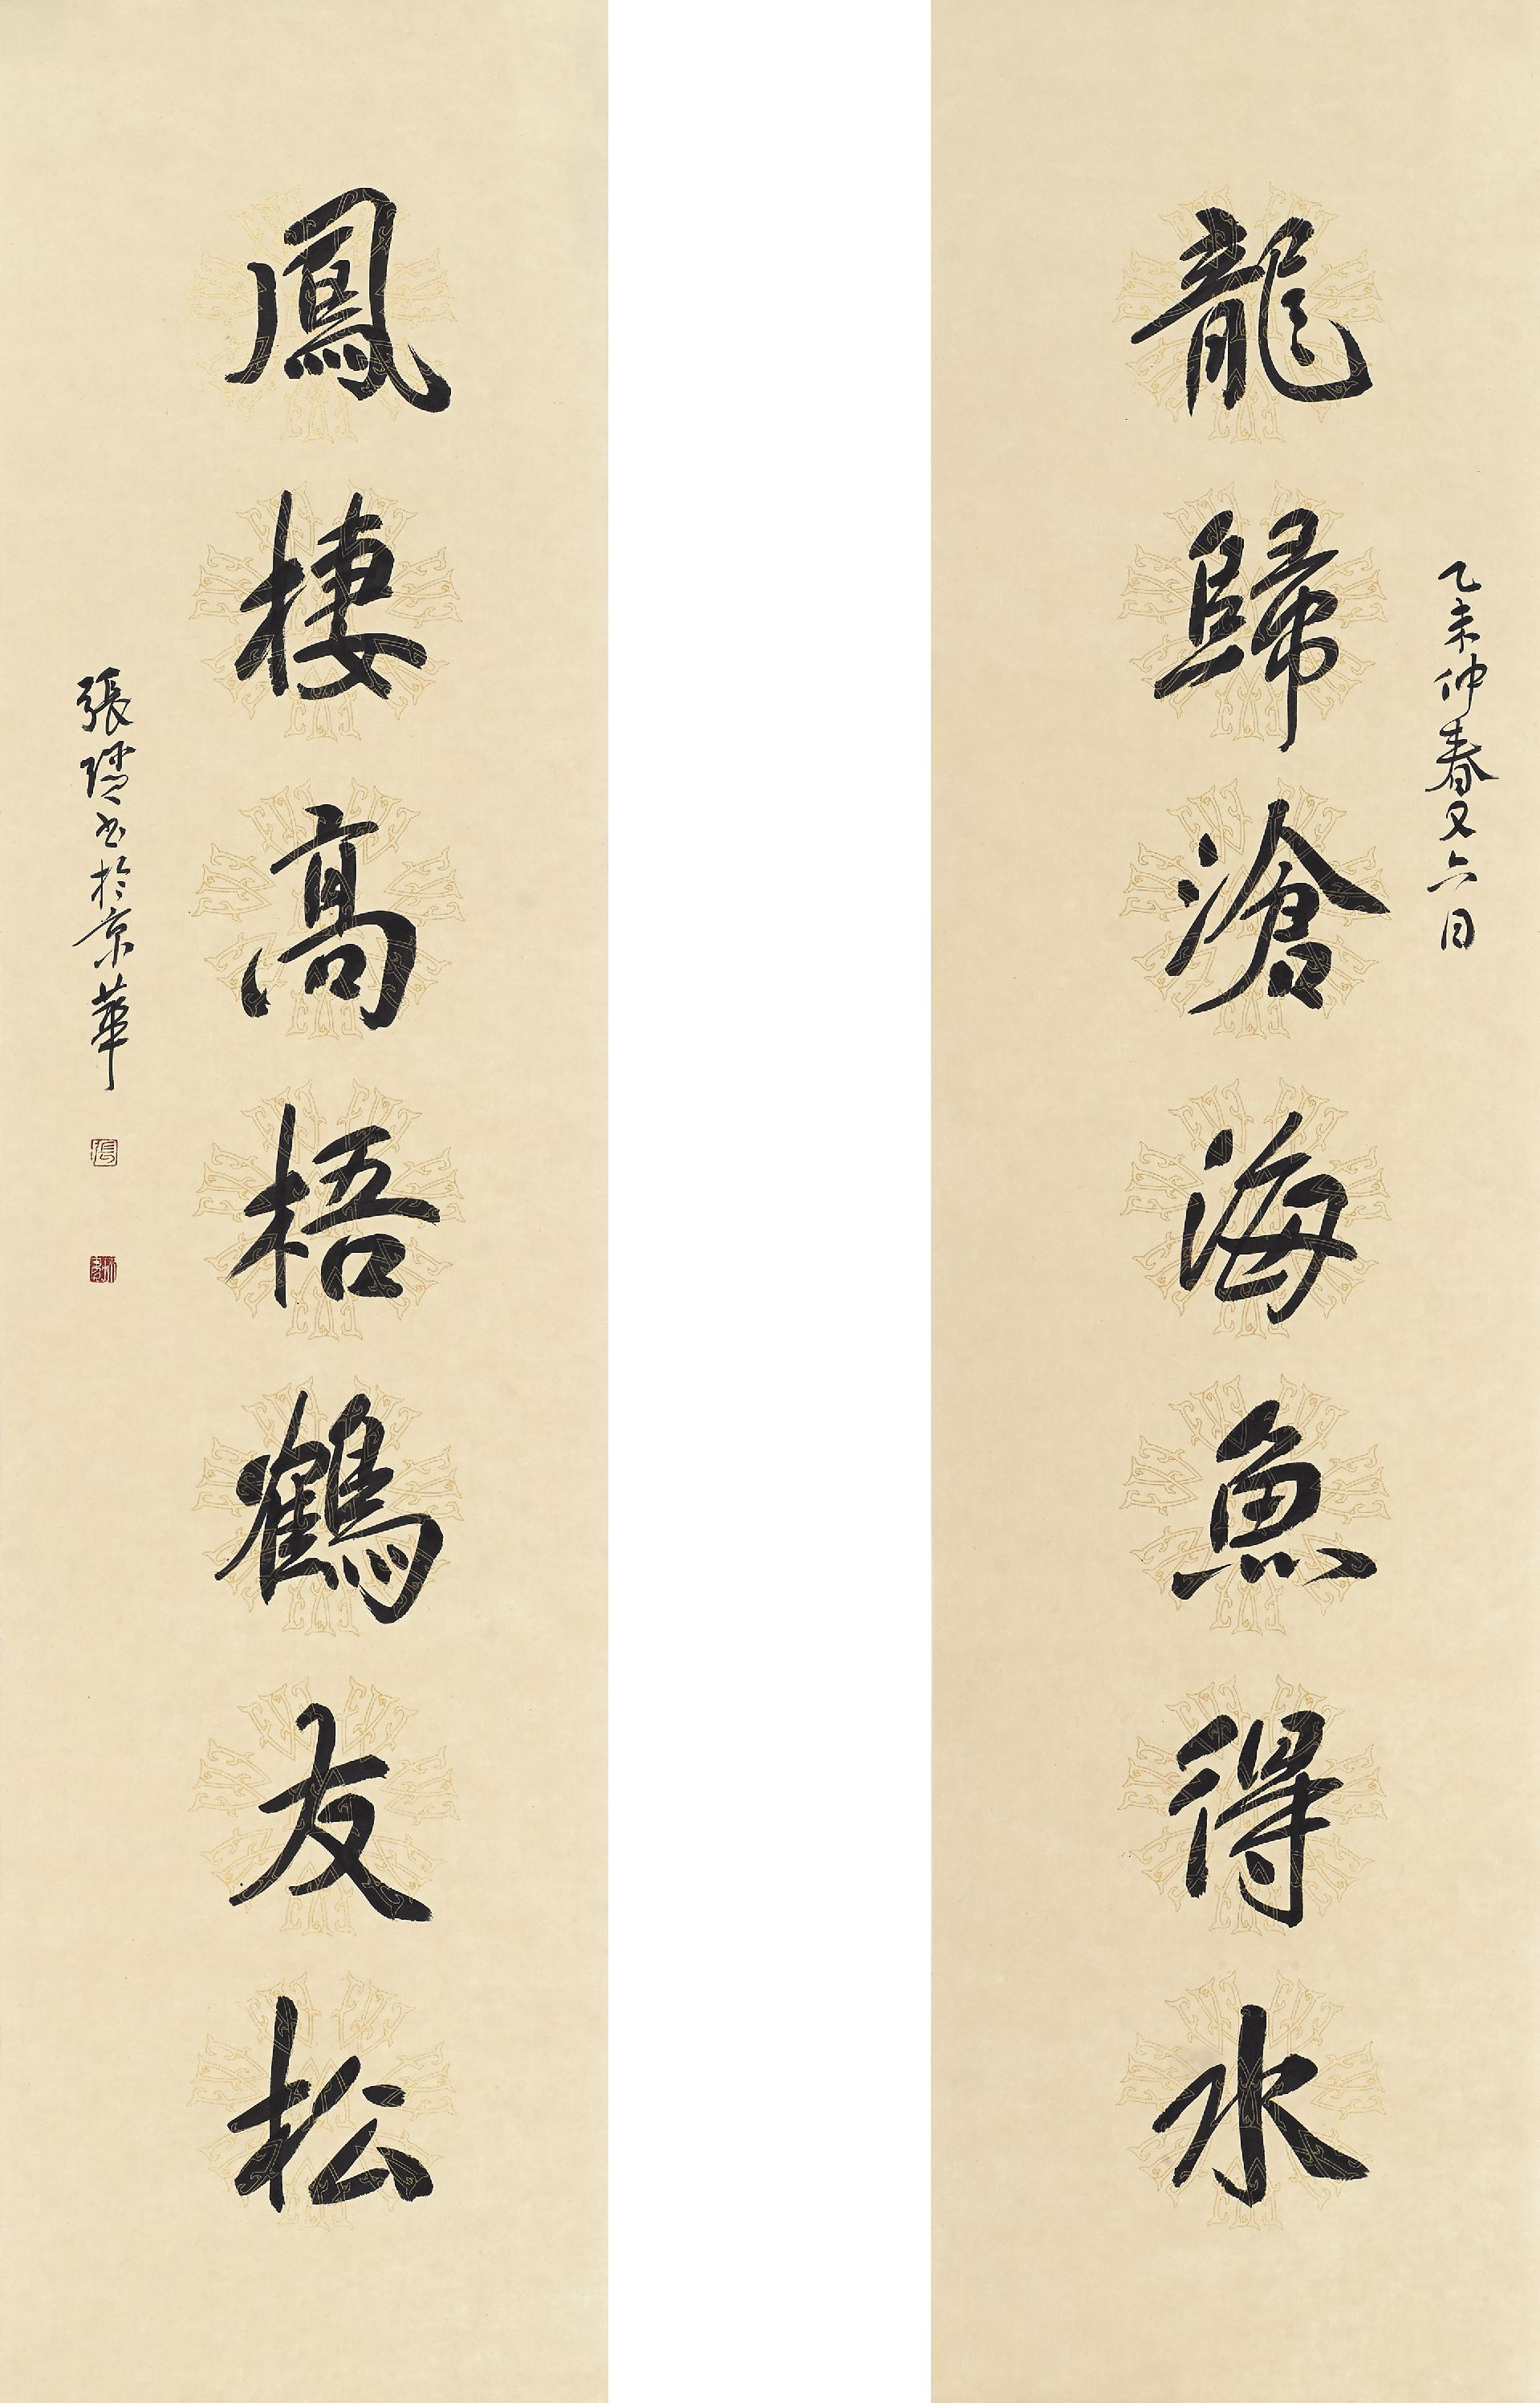 乙未仲春又六日
龍歸滄海魚得水
鳳棲高梧鶴友松
張璠书於京華
張